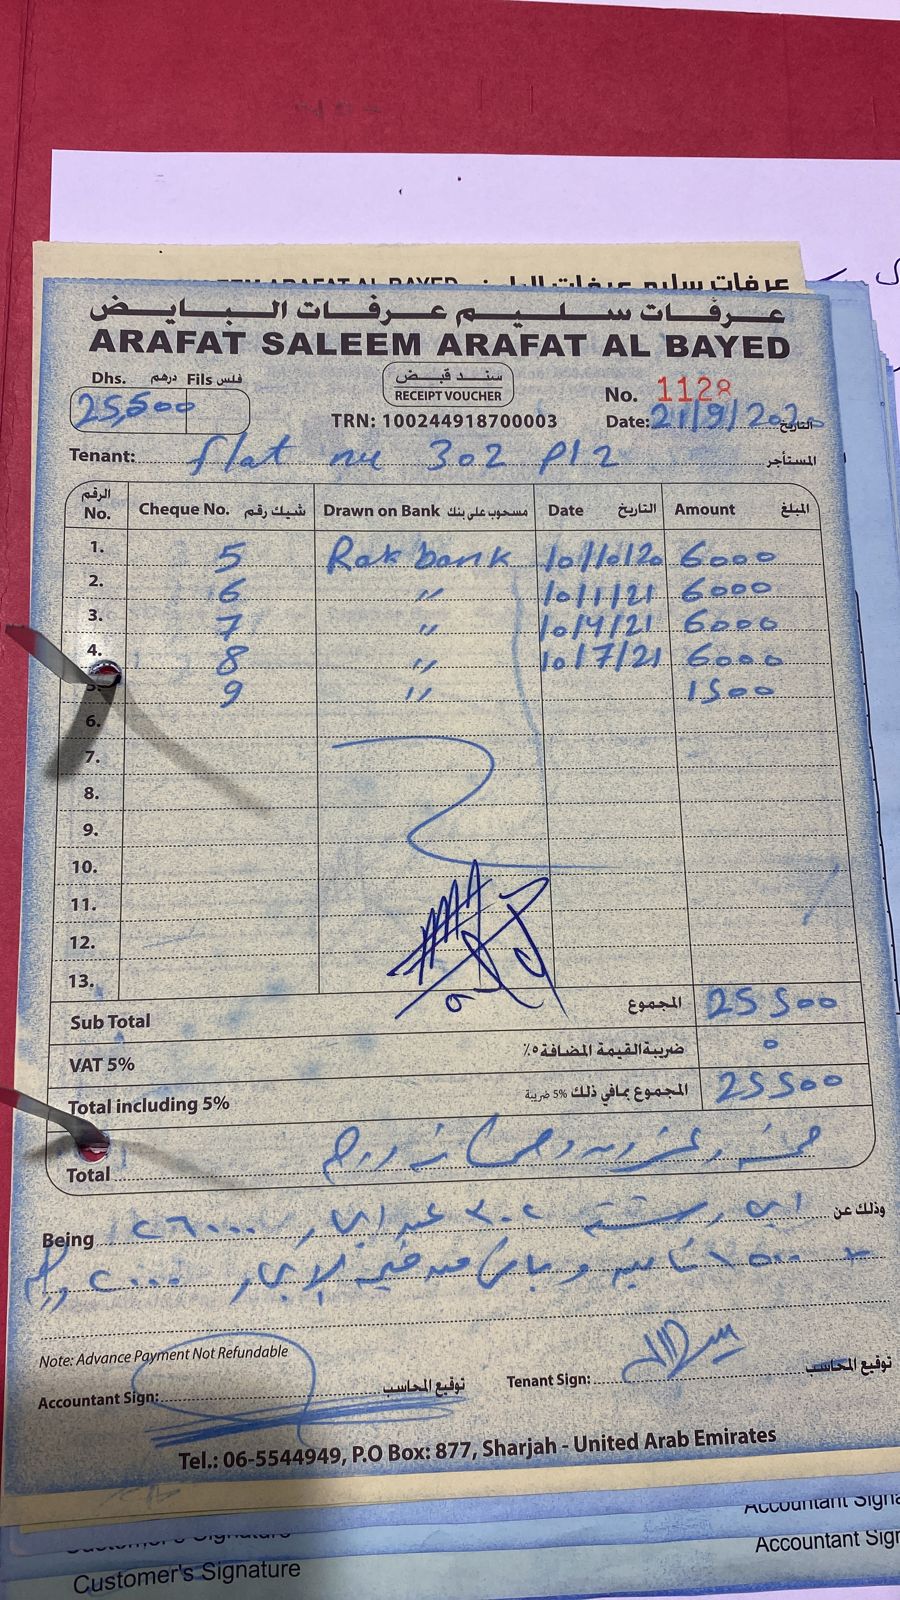 عرفات سليم عرفات البايض
ARAFAT SALEEM ARAFAT AL BAYED
Dhs. درهم Fils فلس
25,500
سند قبض
RECEIPT VOUCHER
No. 1128
TRN: 100244918700003
Date: 21/9/2020 التاريخ
Tenant: flat no 302 P12 المستأجر
الرقم No. Cheque No. شيك رقم Drawn on Bank مسحوب على بنك Date التاريخ Amount المبلغ
1. 5 Rak bank 10/10/20 6000
2. 6 " 10/1/21 6000
3. 7 " 10/4/21 6000
4. 8 " 10/7/21 6000
5. 9 " 1500
6.
7.
8.
9.
10.
11.
12.
13.
Sub Total المجموع 25500
VAT 5% ضريبة القيمة المضافة ٥٪ 0
Total including 5% المجموع بمافي ذلك 5% ضريبة 25500
Total خمسة وعشرون وخمسمائة درهم
Being ٣٠٢ ٢٦٠٠٠ وذلك عن
+ ١٥٠٠ تأمين الإيجار ٢٠٠٠ درهم
Note: Advance Payment Not Refundable
Accountant Sign: توقيع المحاسب
Tenant Sign: توقيع المحاسب
Tel.: 06-5544949, P.O Box: 877, Sharjah - United Arab Emirates
Customer's Signature Accountant Signa
Customer's Signature Accountant Sigr